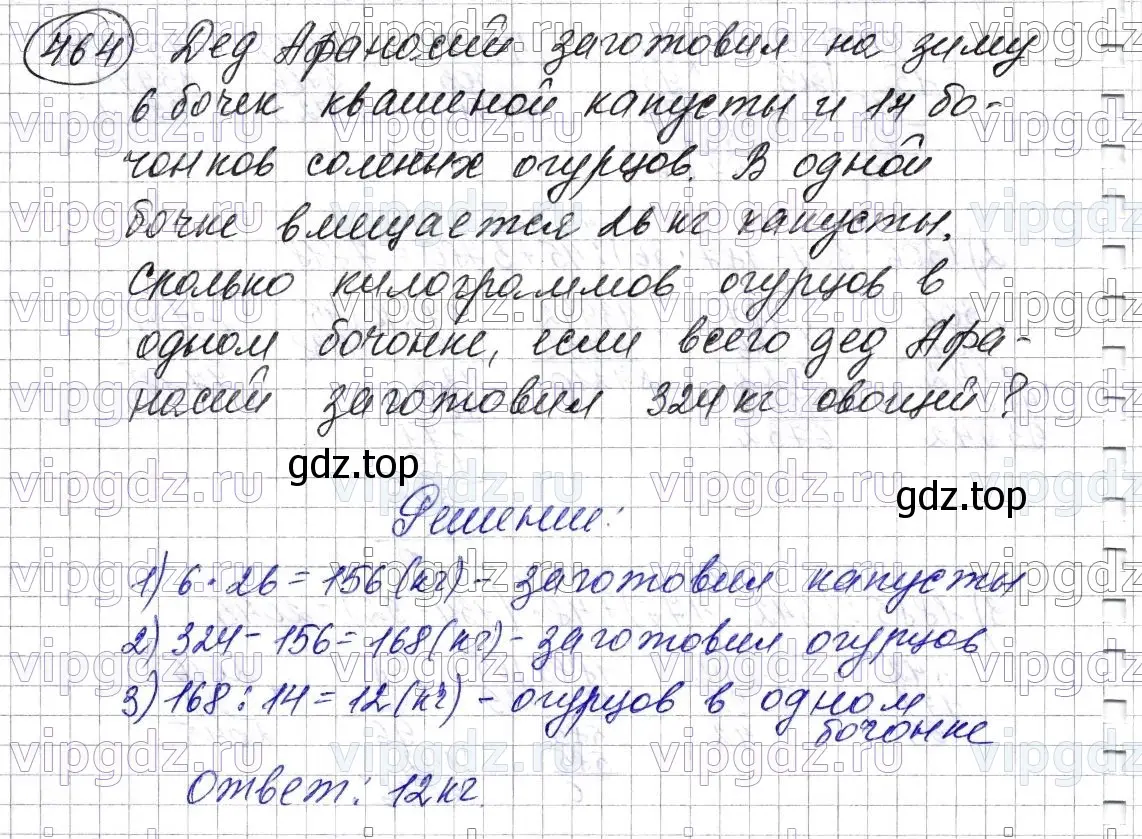 464 Дед Афанасий заготовил на зиму
6 бочек квашеной капусты и 14 бо-
чонков соленых огурцов. В одной
бочке вмещается 26 кг капусты.
Сколько килограммов огурцов в
одном бочонке, если всего дед Афа-
насий заготовил 324 кг овощей?
gdz.top
gdz.top
Решение:
1) 6 · 26 = 156 (кг) - заготовил капусты
2) 324 - 156 = 168 (кг) - заготовил огурцов
3) 168 : 14 = 12 (кг) - огурцов в одном
бочонке
Ответ: 12 кг.